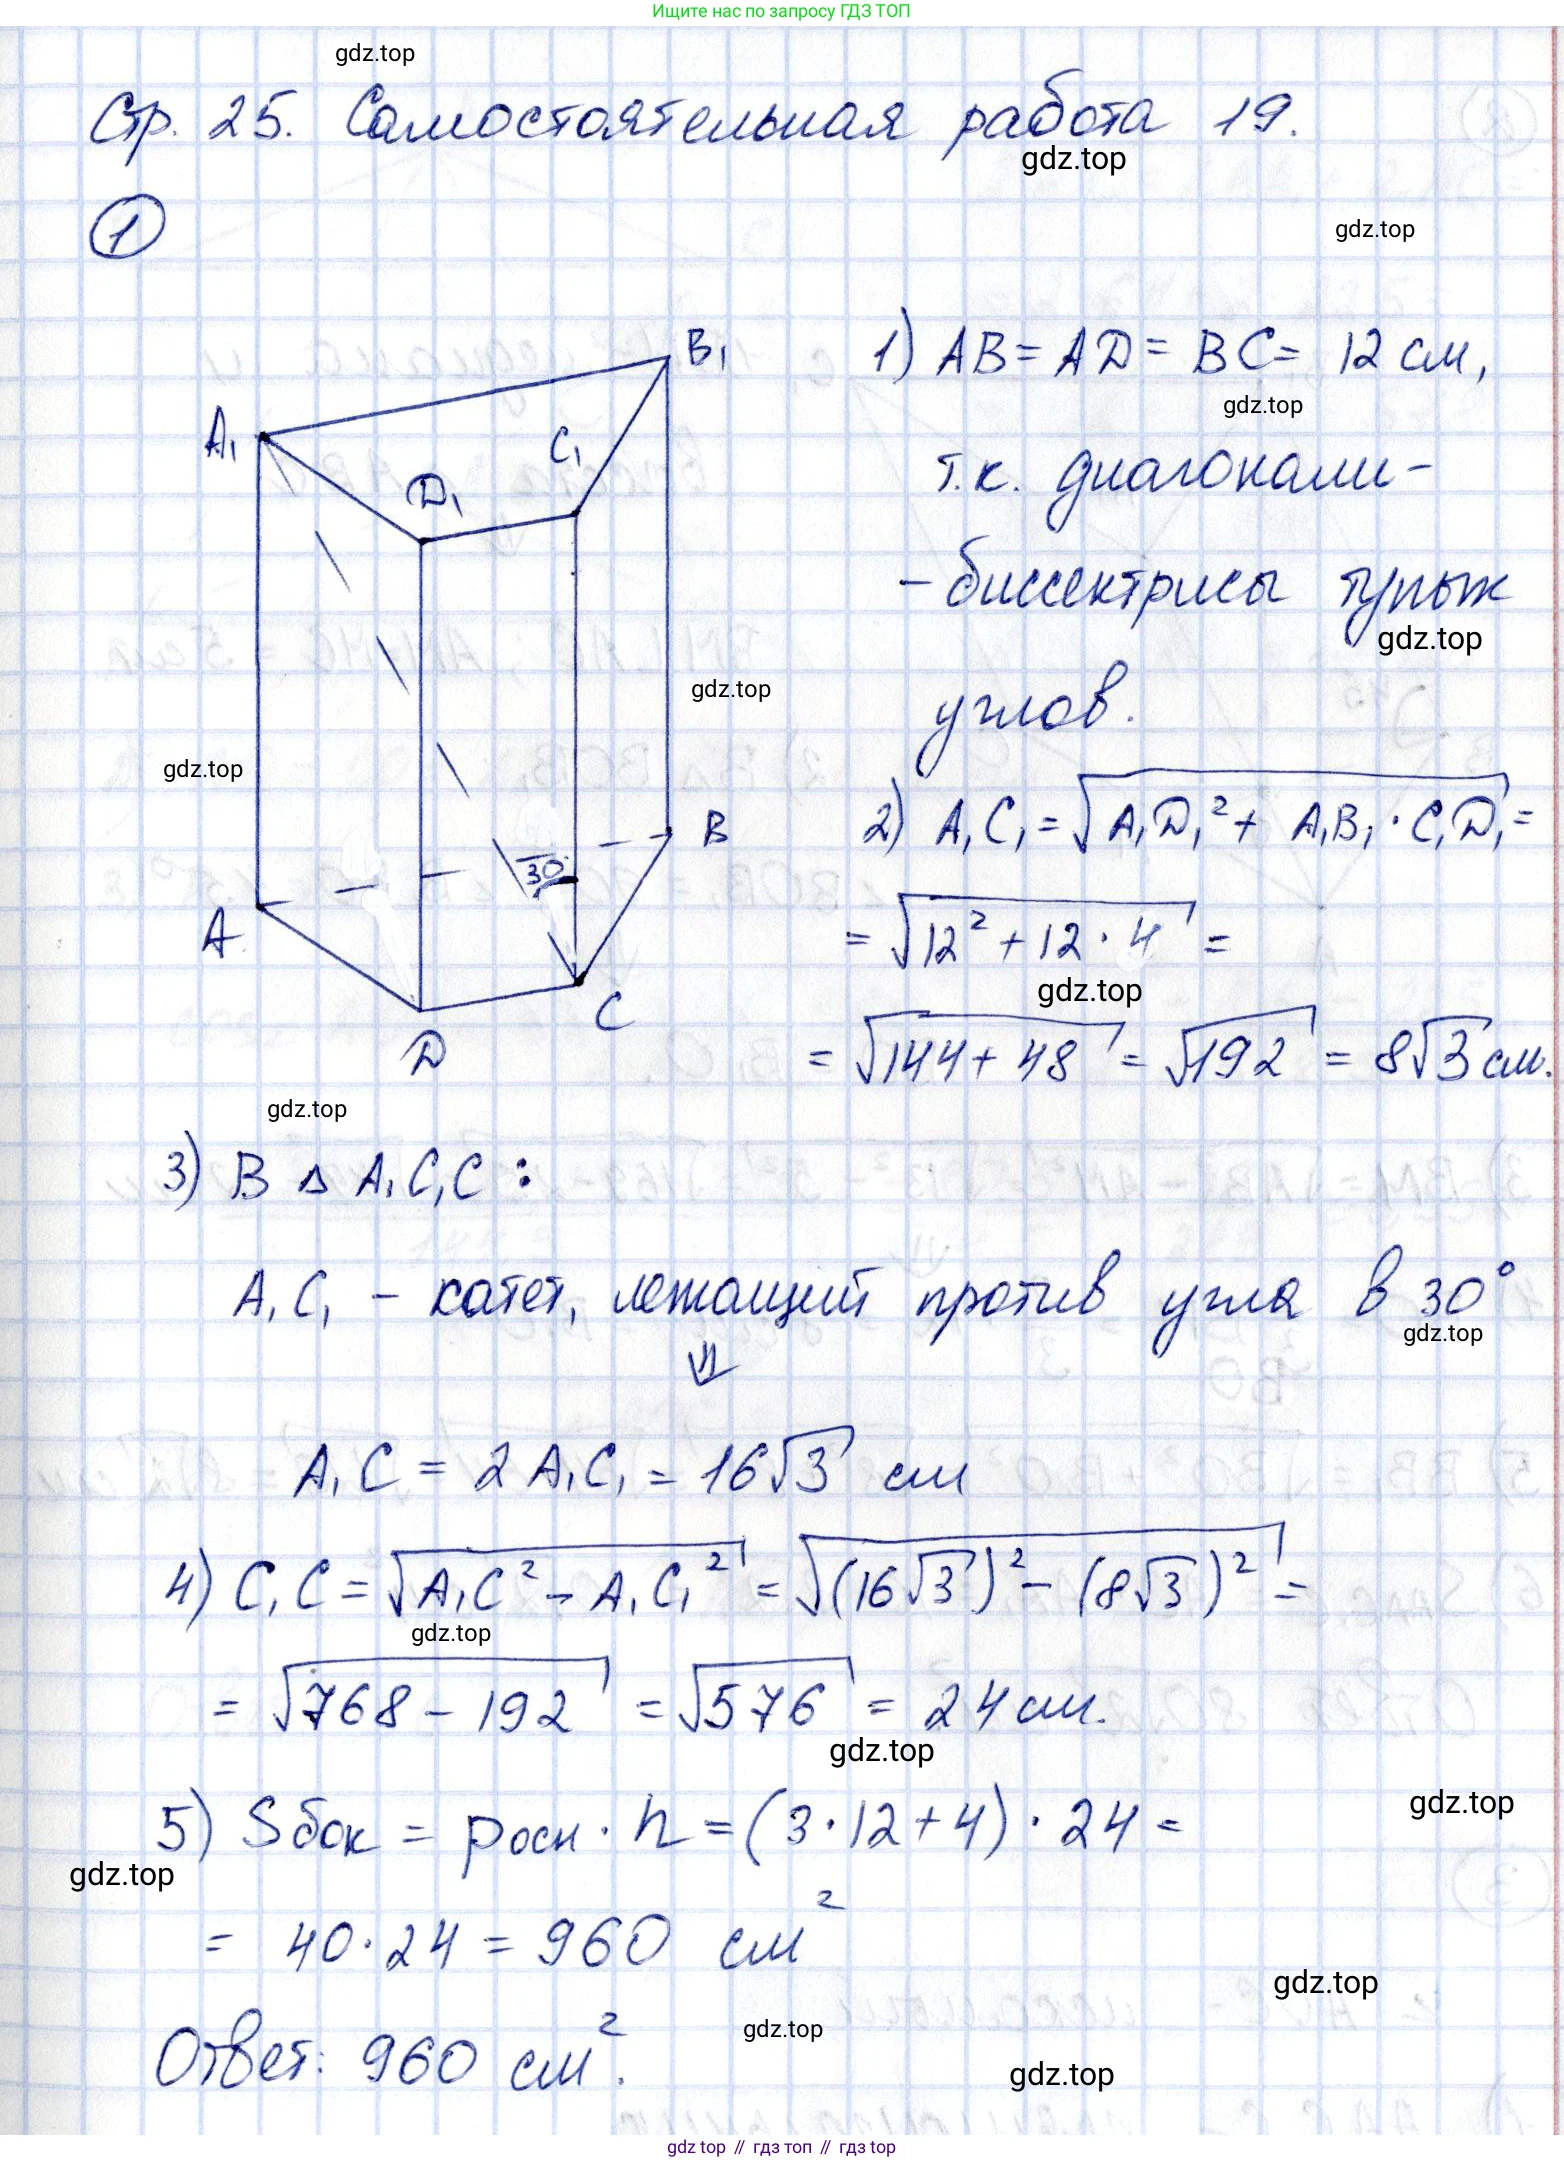 Ищите нас по запросу ГДЗ ТОП
gdz.top
Стр. 25. Самостоятельная работа 19.
gdz.top
1
gdz.top
B₁
1) AB = AD = BC = 12 см,
gdz.top
A₁
C₁
D₁
т.к. диагонали-
-биссектрисы тупых
gdz.top
gdz.top
углов.
gdz.top
B
2) A₁C₁ = √(A₁D₁² + A₁B₁ · C₁D₁) =
30
A
= √(12² + 12 · 4) =
gdz.top
C
D
= √(144 + 48) = √192 = 8√3 см.
gdz.top
3) В △ A₁C₁C :
A₁C₁ - катет, лежащий против угла в 30°
gdz.top
⇓
A₁C = 2A₁C₁ = 16√3 см
4) C₁C = √(A₁C² - A₁C₁²) = √((16√3)² - (8√3)²) =
gdz.top
= √(768 - 192) = √576 = 24 см.
gdz.top
gdz.top
5) Sбок = pосн · h = (3 · 12 + 4) · 24 =
gdz.top
= 40 · 24 = 960 см²
gdz.top
Ответ: 960 см².
gdz.top
gdz.top
gdz top // гдз топ // гдз top